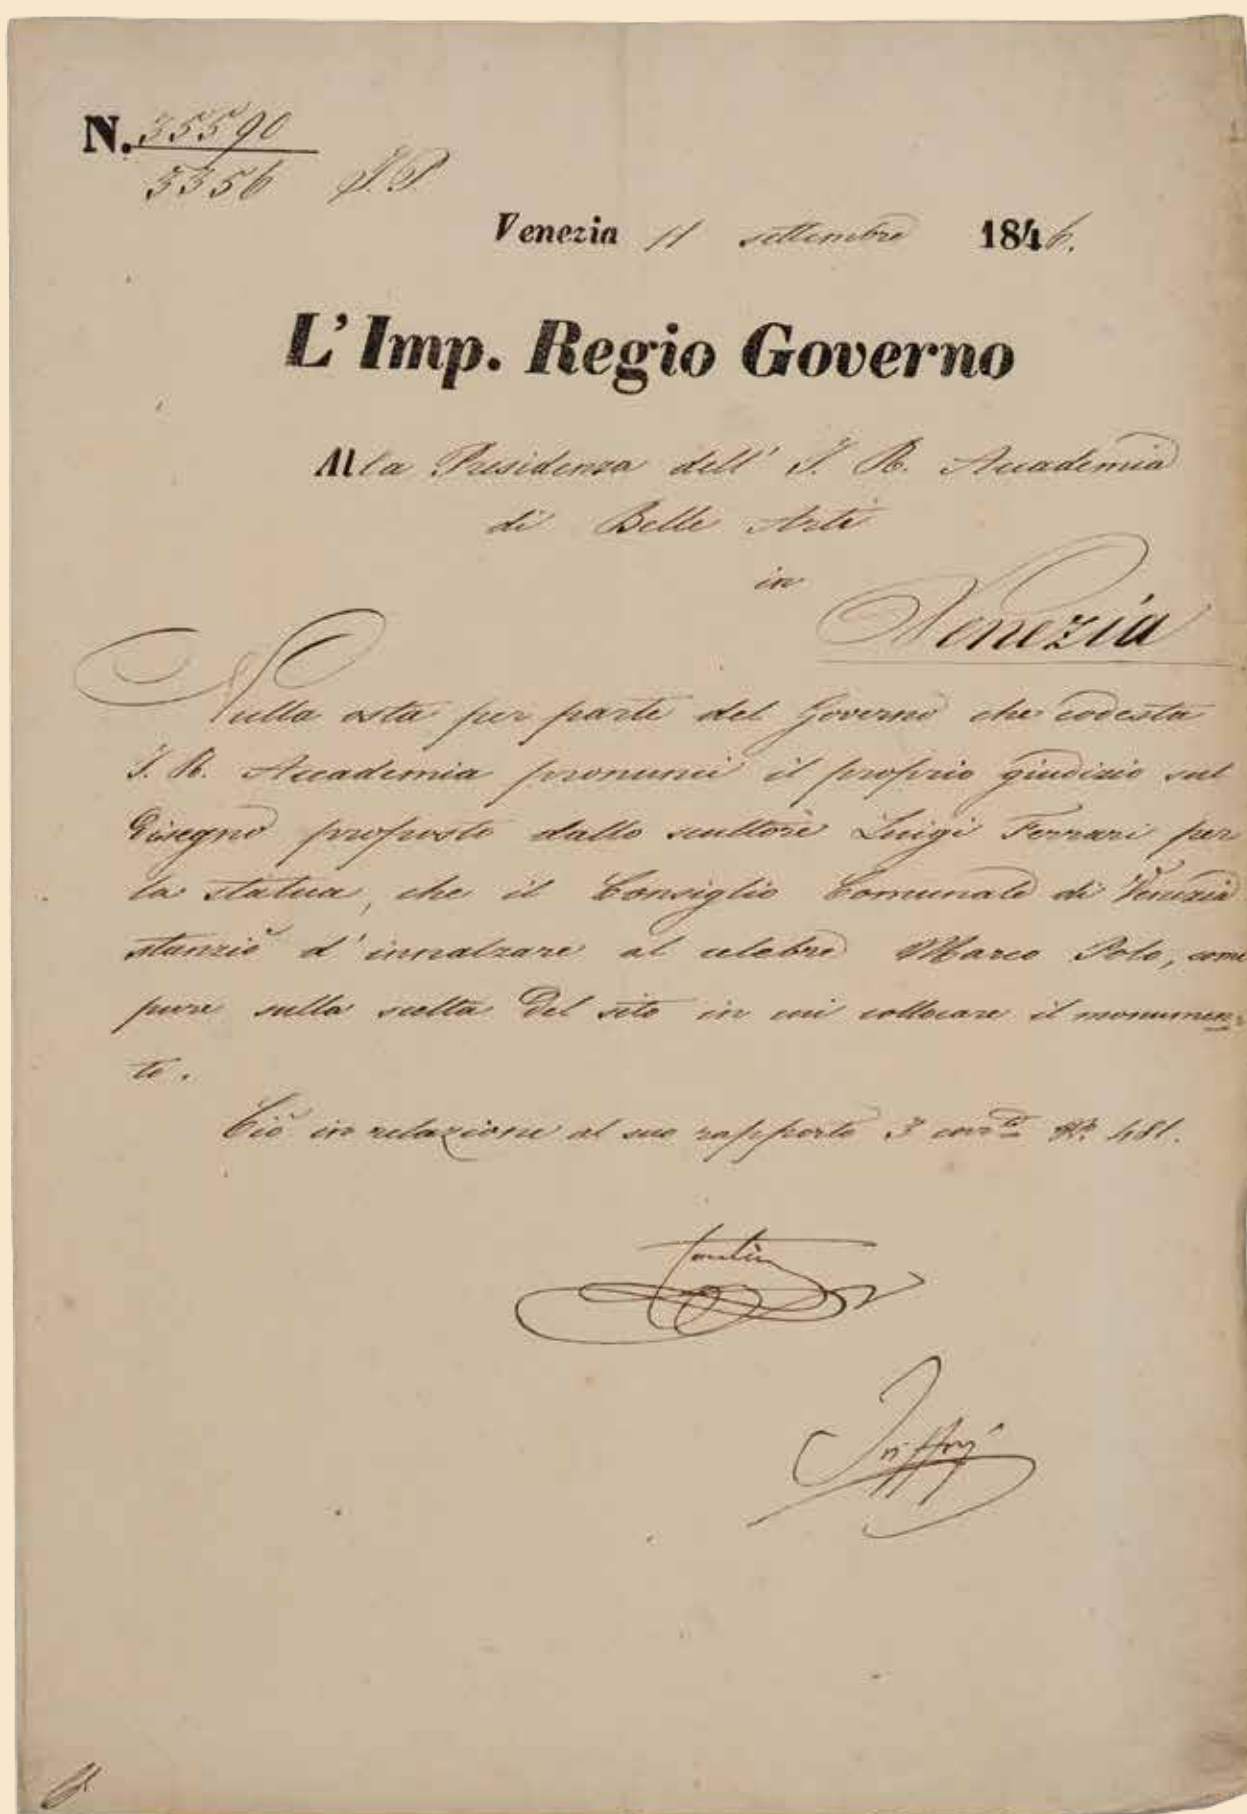 N. 35590
5356 I. P.
Venezia 11 settembre 1846.
L' Imp. Regio Governo
Alla Presidenza dell' I. R. Accademia
di Belle Arti
in
Venezia
Nulla osta per parte del Governo che codesta
I. R. Accademia pronunci il proprio giudizio sul
disegno proposto dallo scultore Luigi Ferrari per
la statua, che il Consiglio Comunale di Venezia
stanziò d' innalzare al celebre Marco Polo, come
pure sulla scelta del sito in cui collocare il monumen-
to.
Ciò in relazione al suo rapporto 3 corr.te N. 481.